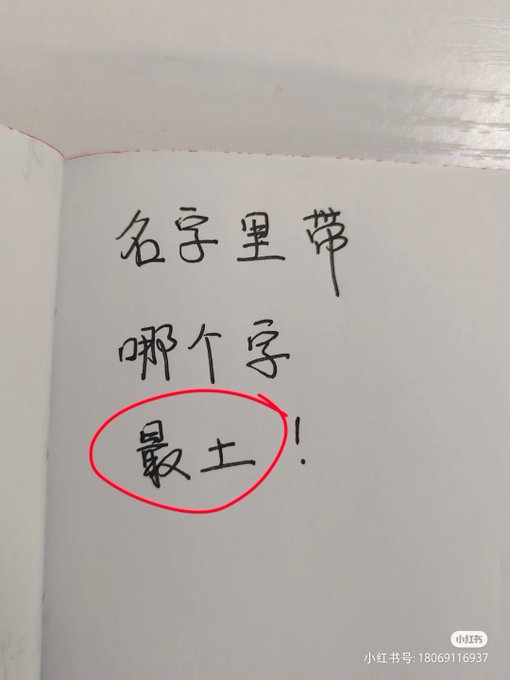 名字里带
哪个字
最土!
小红书
小红书号: 18069116937